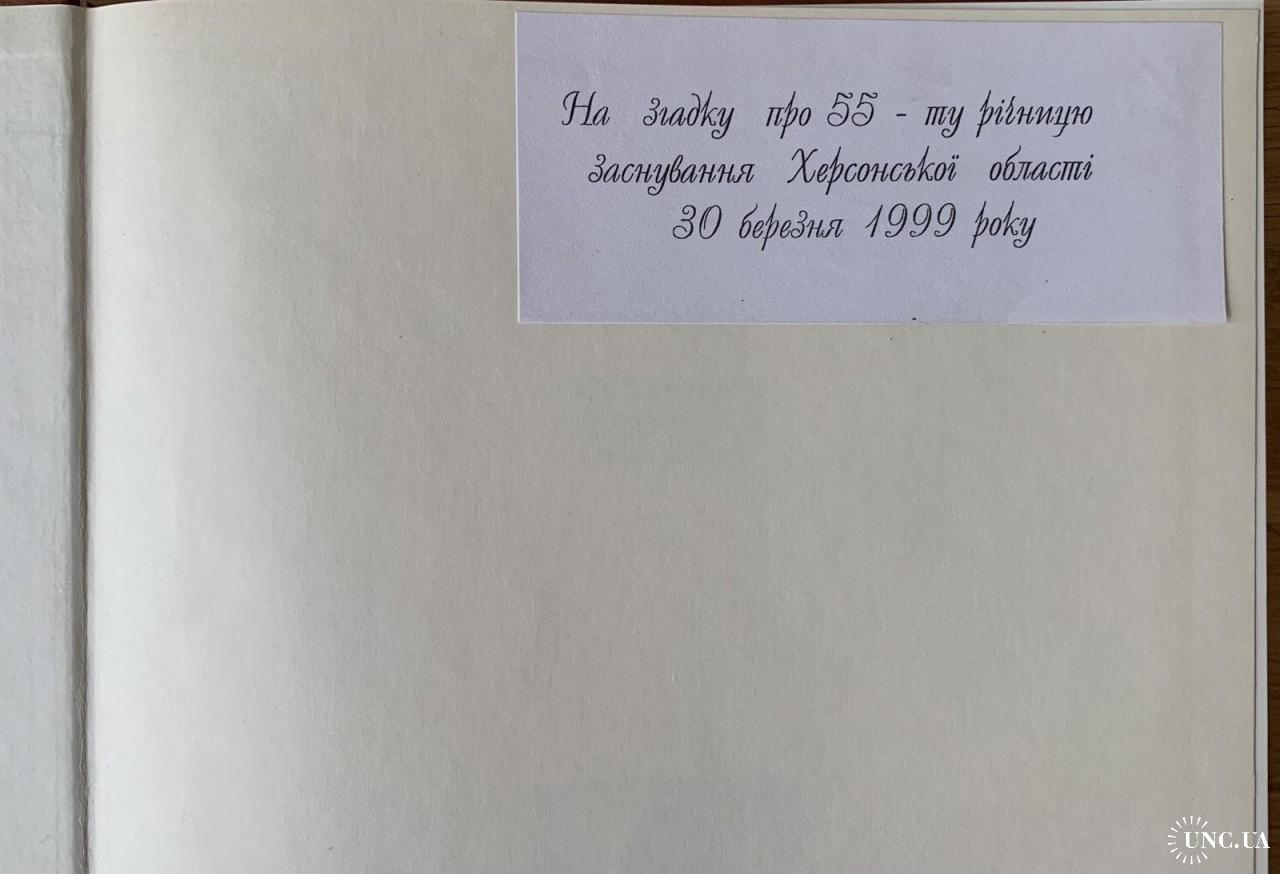 На згадку про 55 - ту річницю
заснування Херсонської області
30 березня 1999 року
UNC.UA